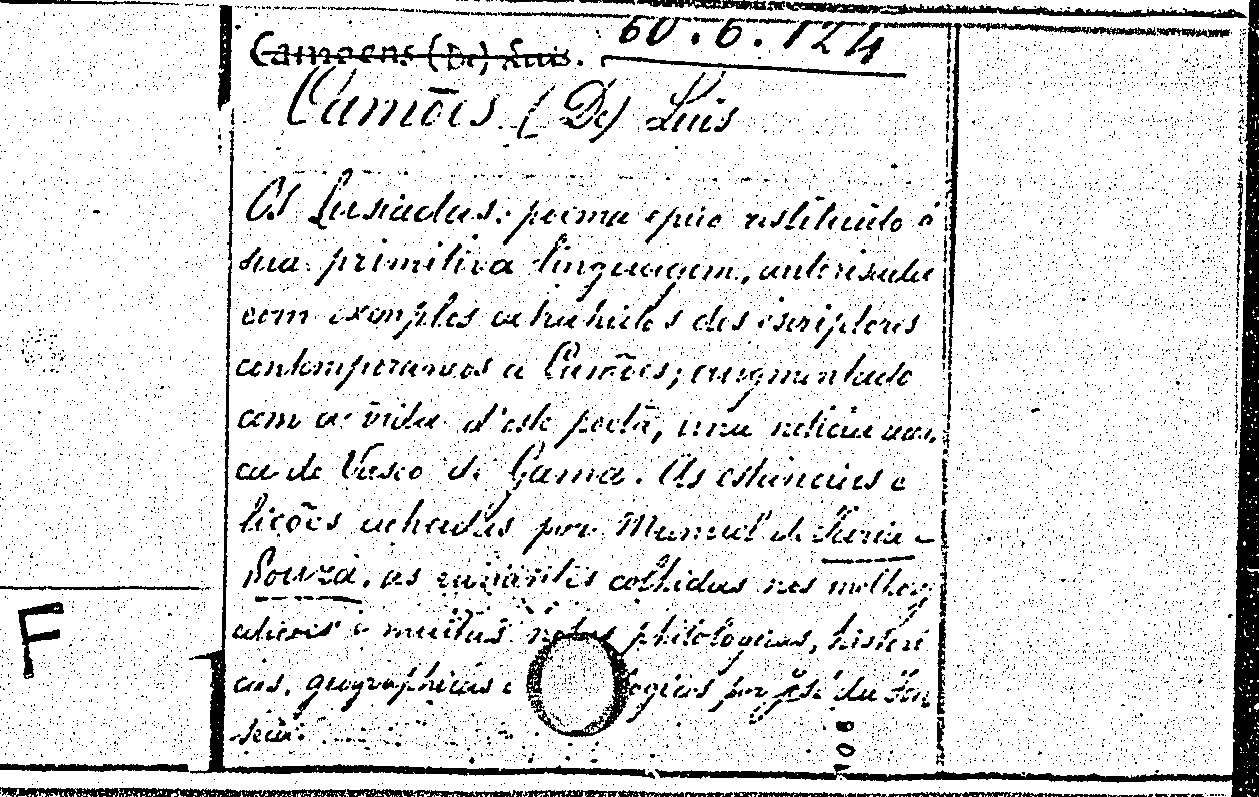 Camoens (De) Luis. 60.6.124
Camões (De) Luis
Os Lusiadas. poema epico restituido á
sua primitiva linguagem, autorisada
com exemplos extrahidos dos escriptores
contemporaneos a Camões; augmentado
com a vida d'este poeta, uma noticia
de Vasco de Gama. As estancias e
lições achadas por Manuel de Faria e
Souza, as variantes colhidas nos
e muitas notas philologicas, histori
cas, geographicas e ogicas por José da Fon
seca.
108
F